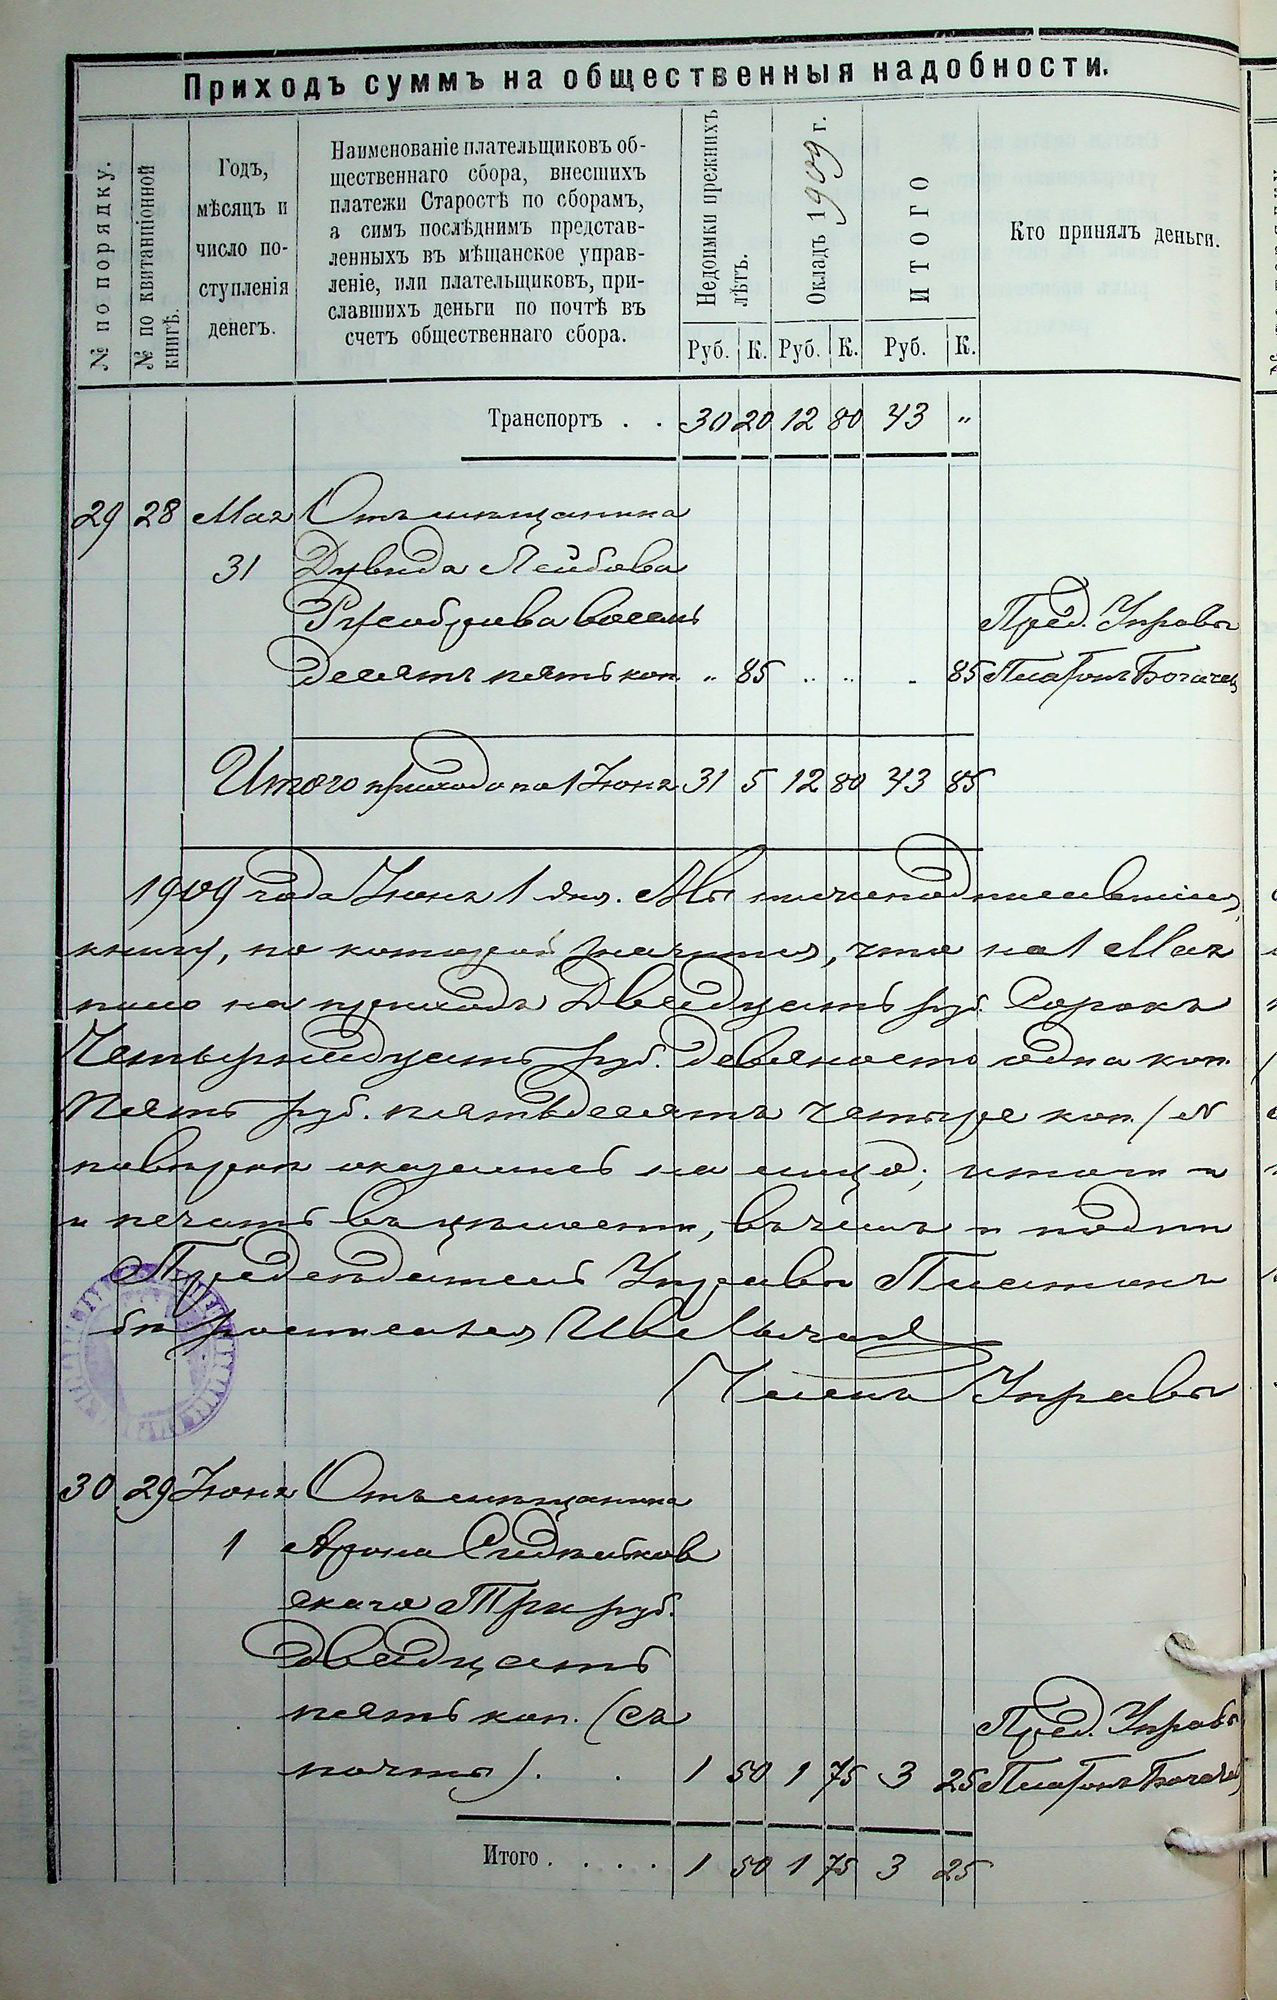 Приходъ суммъ на общественныя надобности.
№ по порядку.
№ по квитанціонной книгѣ.
Годъ, мѣсяцъ и число поступленія денегъ.
Наименованіе плательщиковъ об-
щественнаго сбора, внесшихъ
платежи Старостѣ по сборамъ,
а симъ послѣднимъ представ-
ленныхъ въ мѣщанское управ-
леніе, или плательщиковъ, при-
славшихъ деньги по почтѣ въ
счетъ общественнаго сбора.
Недоимки прежнихъ лѣтъ.
Окладъ 1909 г.
ИТОГО
Кто принялъ деньги.
Руб. К. Руб. К. Руб. К.
Транспортъ . . 30 20 12 80 43 "
29 28 Мая Отъ мѣщанина
31 Дувида Лейбова
восемь Пред. Управы
десятъ пять коп. " 85 " " " 85 Платонъ Богачев
Итого прихода по 1 Іюня 31 5 12 80 43 85
1909 года Іюня 1 дня. Мы нижеподписавшіеся,
книгу, по которой значится, что на 1 Мая
на приходъ Двадцать руб. Сорокъ
Четырнадцать руб. девяносто одна коп.
Пять руб. пятьдесятъ четыре коп. /
повѣрки оказались на лицо; итоги
и печать въ цѣлости, въ чемъ и подпи
Предсѣдатель Управы Платонъ
Членъ Управы
30 29 Іюня Отъ мѣщанина
1 Арона
скаго Три руб.
двадцать
пять коп. (съ Пред. Управы
почты) . . 1 50 1 75 3 25 Платонъ Богачев
Итого . . . . 1 50 1 75 3 25